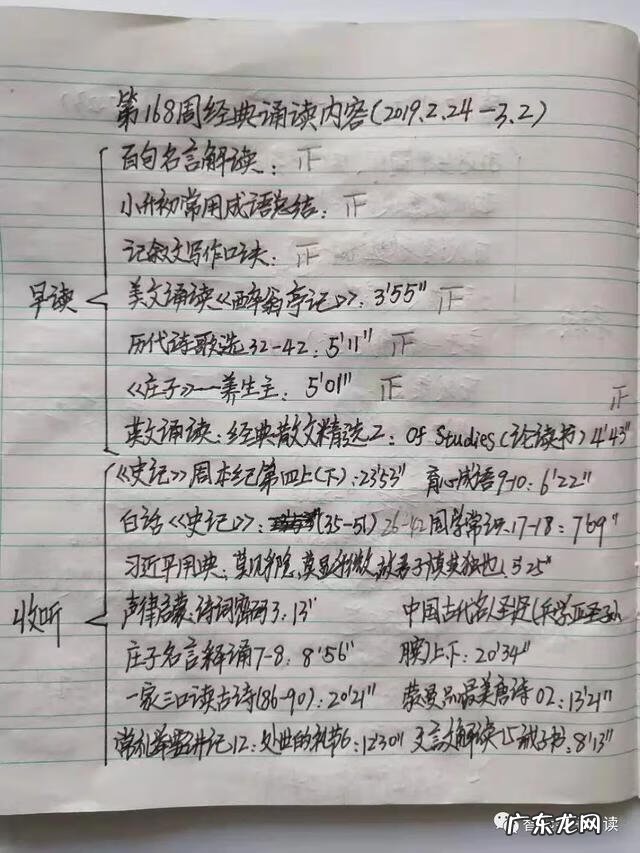 第168周经典诵读内容(2019.2.24-3.2)
百句名言解读: 正
小升初常用成语总结: 正
记叙文写作口诀: 正
早读
美文诵读《醉翁亭记》: 3'55" 正
历代诗歌选32-42: 5'11" 正
《庄子》——养生主: 5'01" 正
正
英文诵读: 经典散文精选2: Of Studies(论读书) 4'43"
《史记》周本纪第四上(下): 23'53" 育心成语9-10: 6'22"
白话《史记》: (35-51) 26-42 国学常识17-18: 7'09"
习近平用典: 莫见乎隐,莫显乎微,故君子慎其独也 5'25"
收听
声律启蒙: 诗词 3: 13" 中国古代名人圣贤(兵学亚圣孙
庄子名言释诵7-8: 8'56" 膑)上下: 20'34"
一家三口读古诗(86-90): 20'21" 蒙曼品最美唐诗02: 13'21"
常礼举要讲记12: 处世的礼节6: 12'30" 文言文解读 诫子书: 8'13"
广东龙网
读